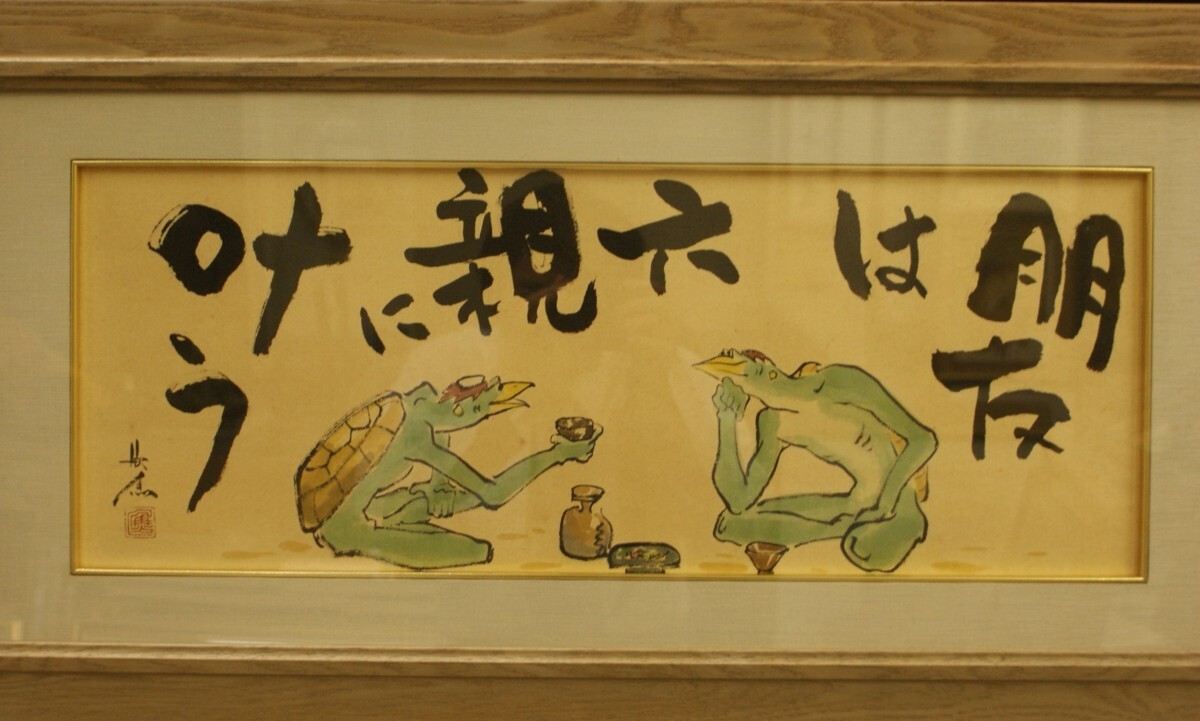 朋友
は
六
親に
叶う